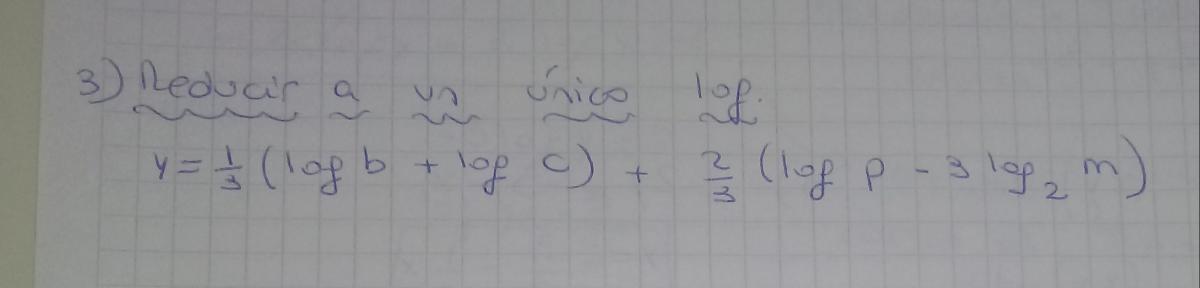 3) Reducir a un único log.
y = 1/3 (log b + log c) + 2/3 (log p - 3 log₂ m)